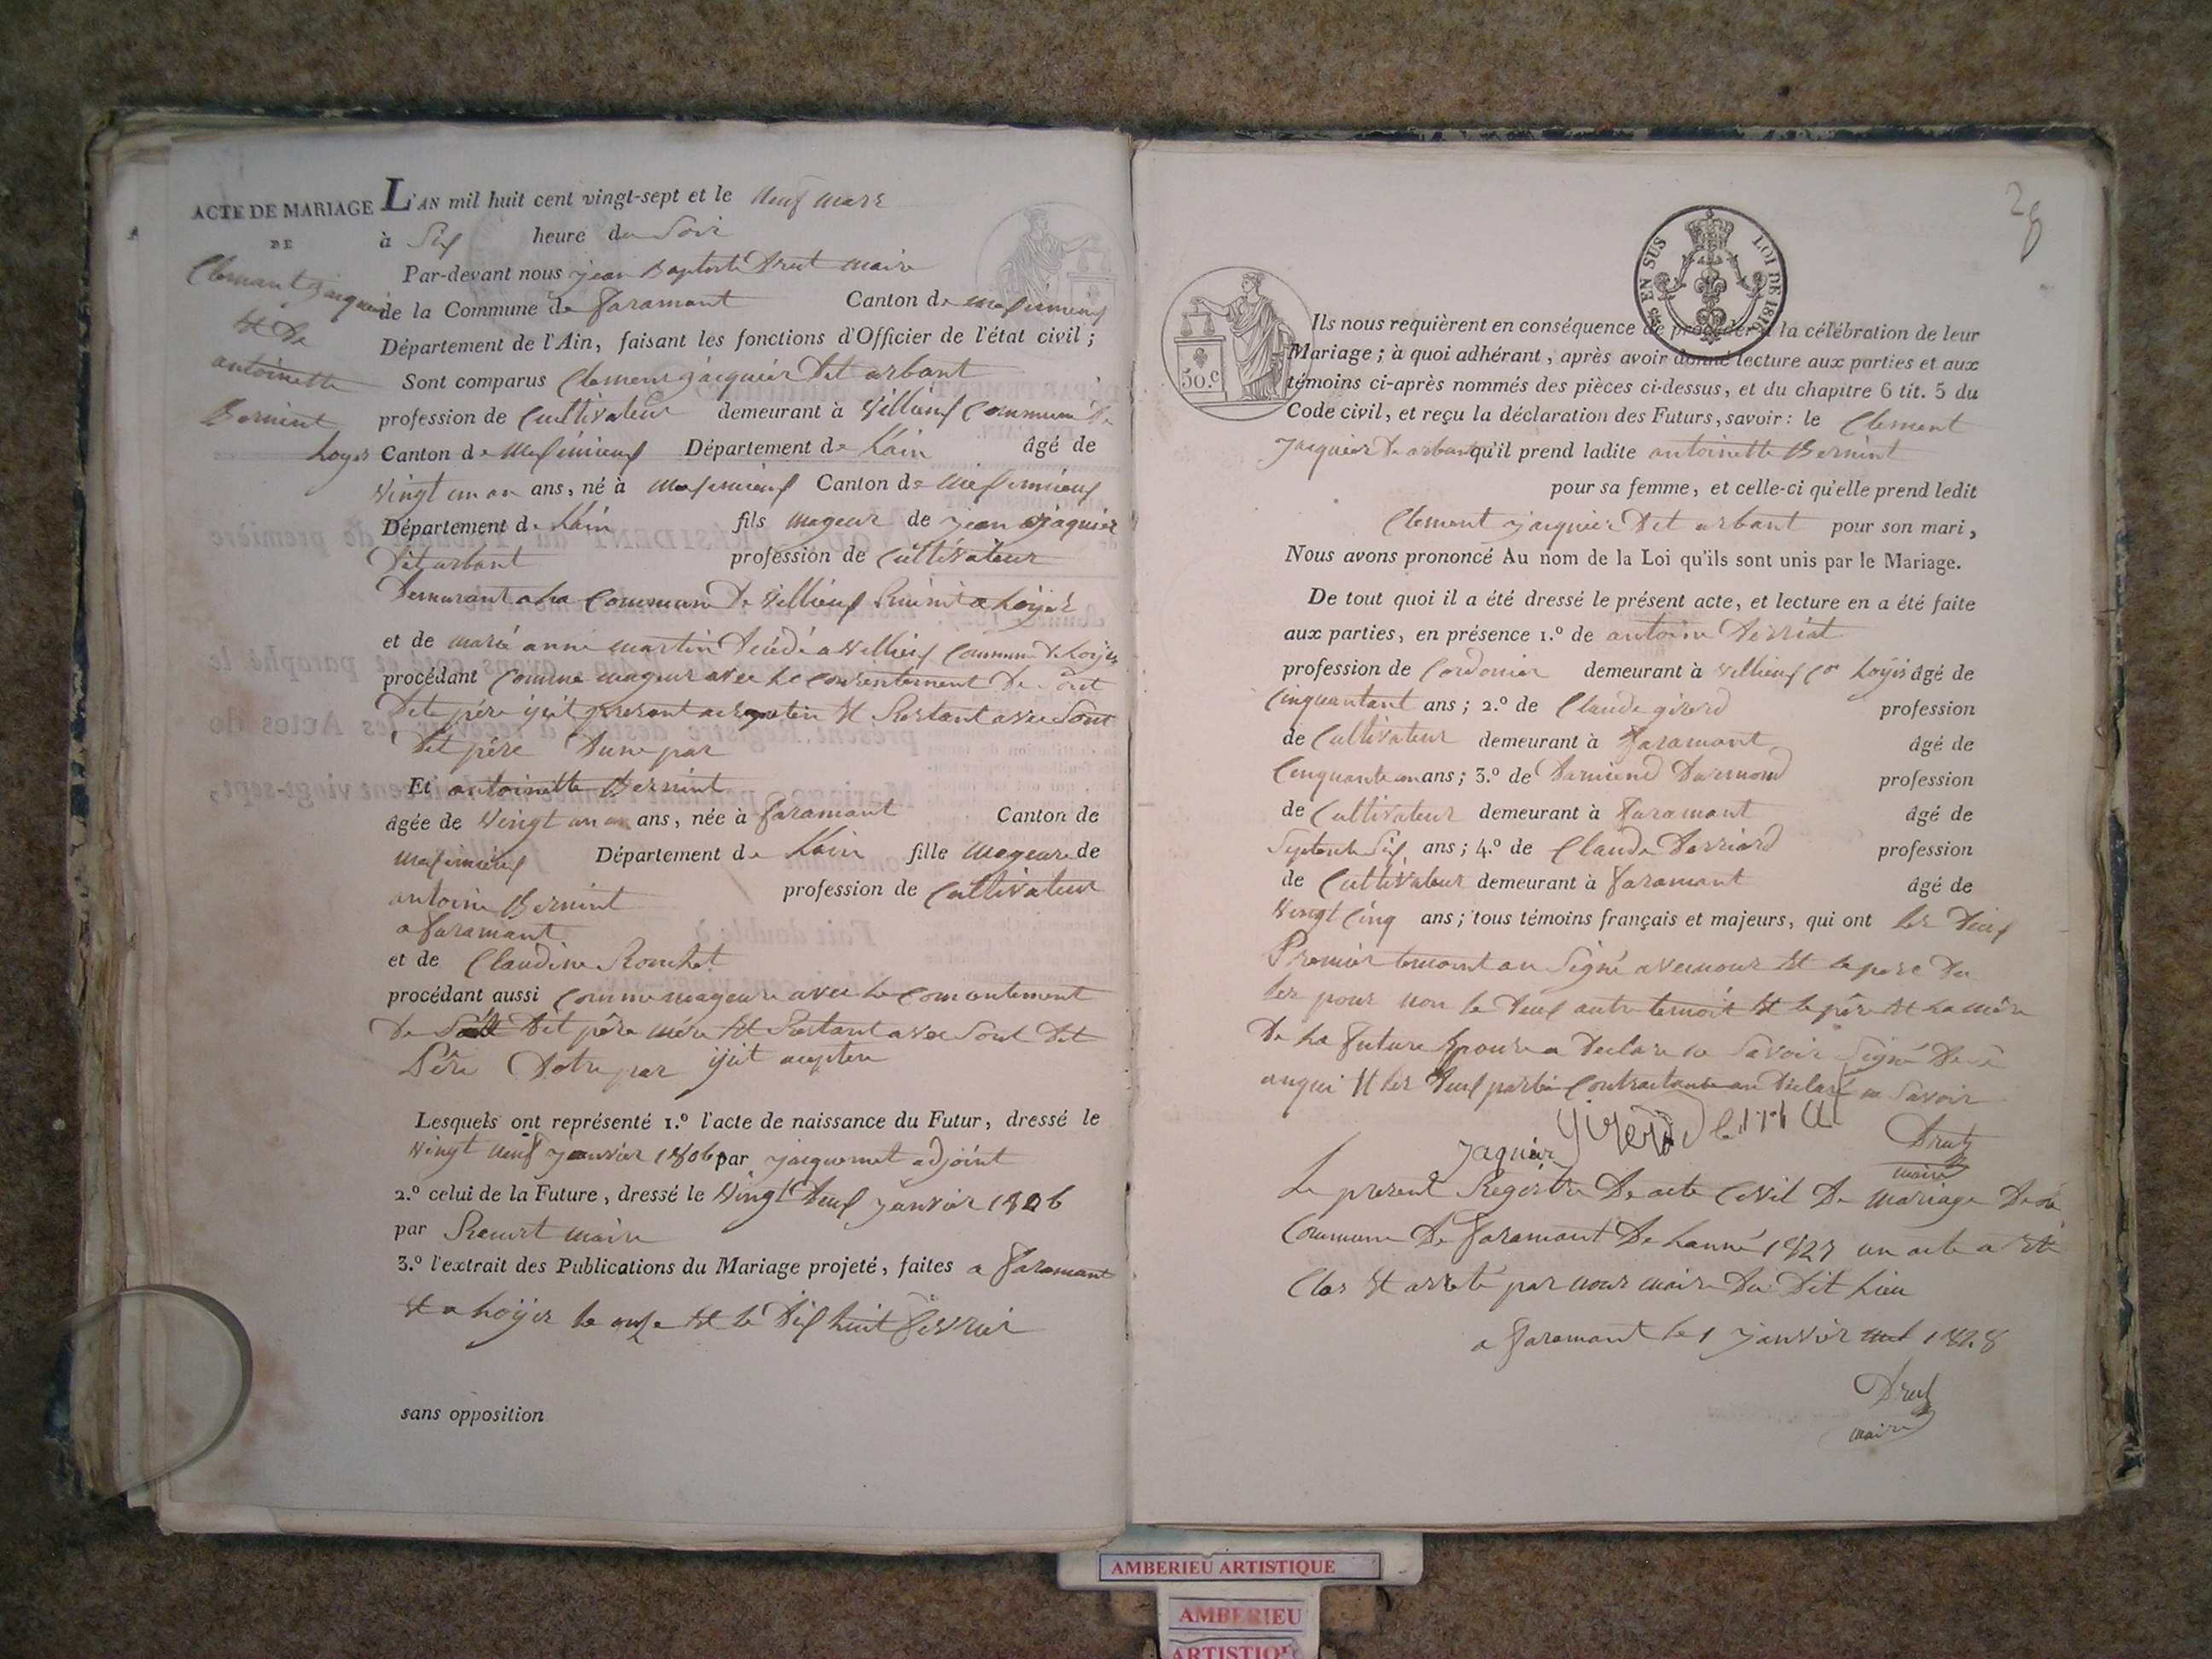 ACTE DE MARIAGE
DE
Clemant Jacquier
et De
antoinette
Bernint
L'AN mil huit cent vingt-sept et le neuf mars
à Six heure du Soir
Par-devant nous jean Baptiste Drut maire
de la Commune de faramant Canton de meximieux
Département de l'Ain, faisant les fonctions d'Officier de l'état civil;
Sont comparus Clement jacquier Dit arbant
profession de Cultivateur demeurant à Villieux Commune De
Loyes Canton de Meximieux Département de Lain âgé de
Vingt un an ans, né à Meximieux Canton de Meximieux
Département de Lain fils mageur de jean jaquier
Dit arbant profession de Cultivateur
Demurant a la Commune De Villieux Reunit a Loyes
et de marie anne martin Décédé a Villieux Commune De Loyes
procédant Comme mageur avec le Consentement De Sont
Dit père Dune par
Et antoinette Bernint
âgée de Vingt un an ans, née à faramant Canton de
Meximieux Département de Lain fille mageure de
antoine Bernint profession de Cultivateur
a faramant
et de Claudine Ronchet
procédant aussi Comme mageure avec le Consentement
De Dit père mère et Restant avec Sont Dit
Père Dotre par
Lesquels ont représenté 1.º l'acte de naissance du Futur, dressé le
Vingt neuf janvier 1806 par jacquemet adjoint
2.º celui de la Future, dressé le Vingt Deux janvier 1806
par maire
3.º l'extrait des Publications du Mariage projeté, faites a faramant
et a Loyes le onze et le Dix huit fevrier
sans opposition
28
EN SUS
LOI DE 1816
50.c
Ils nous requièrent en conséquence de procéder à la célébration de leur
Mariage; à quoi adhérant, après avoir donné lecture aux parties et aux
témoins ci-après nommés des pièces ci-dessus, et du chapitre 6 tit. 5 du
Code civil, et reçu la déclaration des Futurs, savoir: le Clement
Jacquier De arbant qu'il prend ladite antoinette Bernint
pour sa femme, et celle-ci qu'elle prend ledit
Clement jacquier Dit arbant pour son mari,
Nous avons prononcé Au nom de la Loi qu'ils sont unis par le Mariage.
De tout quoi il a été dressé le présent acte, et lecture en a été faite
aux parties, en présence 1.º de antoine Derriat
profession de Cordonier demeurant à Villieux Cne Loyes âgé de
Cinquantant ans; 2.º de Claude girerd profession
de Cultivateur demeurant à faramant âgé de
Cinquante an ans; 3.º de Darmond profession
de Cultivateur demeurant à faramant âgé de
Septente Six ans; 4.º de Claude Derriard profession
de Cultivateur demeurant à faramant âgé de
Vingt Cinq ans; tous témoins français et majeurs, qui ont les Deux
Premier temoint an Signé avec nous et le pere Du
les pour non le Deux autre temoit et le père et la mère
De la future Epouse a Declare ne Savoir Signé De ce
anqui et les Deux partie Contractante an Declaré ne Savoir
Jaquier Girerd Drut
maire
Le present Registre De acte Civil De Mariage De la
Commune De faramant De Lanné 1827 un acte a été
Clos et arreté par nous maire Du Dit Lieu
a faramant le 1 janvier 1828
Drut
maire
AMBERIEU ARTISTIQUE
AMBERIEU
ARTISTIQUE